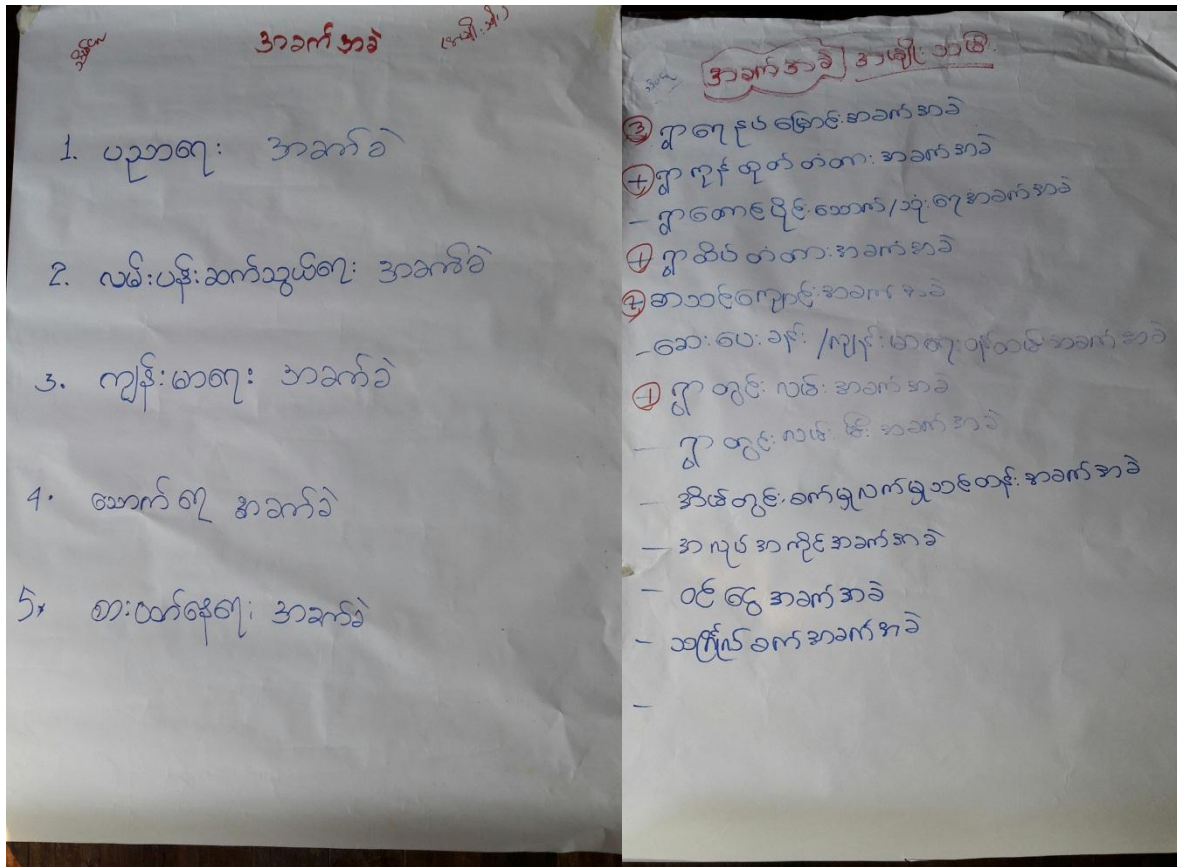 အခက်အခဲ
1. ပညာရေး အခက်ခဲ
2. လမ်းပန်းဆက်သွယ်ရေး အခက်ခဲ
3. ကျန်းမာရေး အခက်ခဲ
4. သောက်ရေ အခက်ခဲ
5. စားဝတ်နေရေး အခက်ခဲ
အခက်အခဲ အမျိုးသမီး
③ ရွာရေနုပ်မြောင်းအခက်အခဲ
+ ရွာကုန်ထုတ်တံတားအခက်အခဲ
- ရွာတောင်ပိုင်းသောက်/သုံးရေအခက်အခဲ
+ ရွာဆိပ်တံတားအခက်အခဲ
② စာသင်ကျောင်းအခက်အခဲ
- ဆေးပေးခန်း/ကျန်းမာရေးဝန်ထမ်းအခက်အခဲ
+ ရွာတွင်းလမ်းအခက်အခဲ
- ရွာတွင်းလမ်းမီးအခက်အခဲ
- အိမ်တွင်းစက်မှုလက်မှုသင်တန်းအခက်အခဲ
- အလုပ်အကိုင်အခက်အခဲ
- ဝင်ငွေအခက်အခဲ
- သင်္ကြိုလ်စက်အခက်အခဲ
-